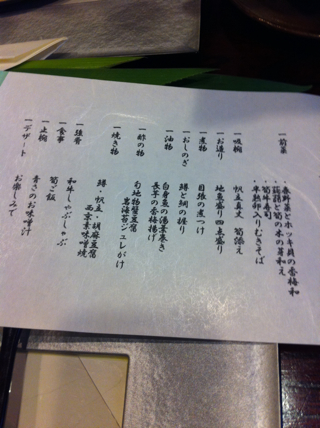 一前菜
・春野菜とホッキ貝の香梅和
・蒟蒻と筍の木の芽和え
・筍牛寿司
・半熟卵入りむきそば
一吸椀 帆立真丈 筍添え
一お造り 地魚盛り四点盛り
一煮物 目張の煮つけ
一おしのぎ 鱒と鯛の握り
一油物 白身魚の湯葉巻き
長芋の香梅揚げ
一酢の物 旬地物蟹豆腐
岩海苔ジュレがけ
一焼き物 鱒・帆立・胡麻豆腐
西京味噌焼
一強肴 和牛しゃぶしゃぶ
一食事 筍ご飯
一止椀 青さのお味噌汁
一デザート お楽しみで